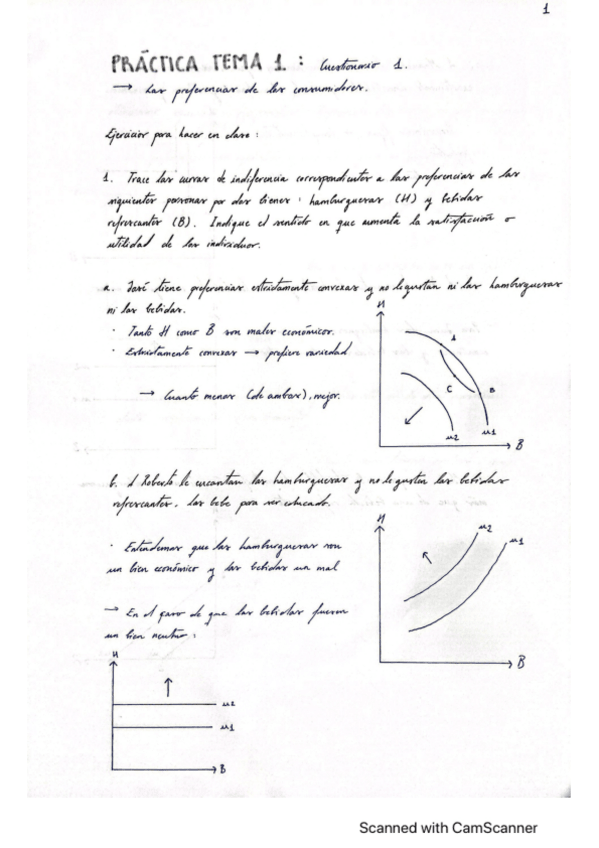 1
PRÁCTICA TEMA 1 : Cuestionario 1.
→ Las preferencias de los consumidores.
Ejercicios para hacer en clase :
1. Trace las curvas de indiferencia correspondientes a las preferencias de las
siguientes personas por dos bienes : hamburguesas (H) y bebidas
refrescantes (B). Indique el sentido en que aumenta la satisfacción o
utilidad de los individuos.
a. José tiene preferencias estrictamente convexas y no le gustan ni las hamburguesas
ni las bebidas.
· Tanto H como B son males económicos.
· Estrictamente convexas → prefiere variedad
→ Cuanto menos (de ambos), mejor.
H
A
C
B
u2
u1
B
b. A Roberto le encantan las hamburguesas y no le gustan las bebidas
refrescantes, las bebe para ser educado.
· Entendemos que las hamburguesas son
un bien económico y las bebidas un mal
→ En el caso de que las bebidas fueran
un bien neutro :
H
u2
u1
B
H
u2
u1
B
Scanned with CamScanner